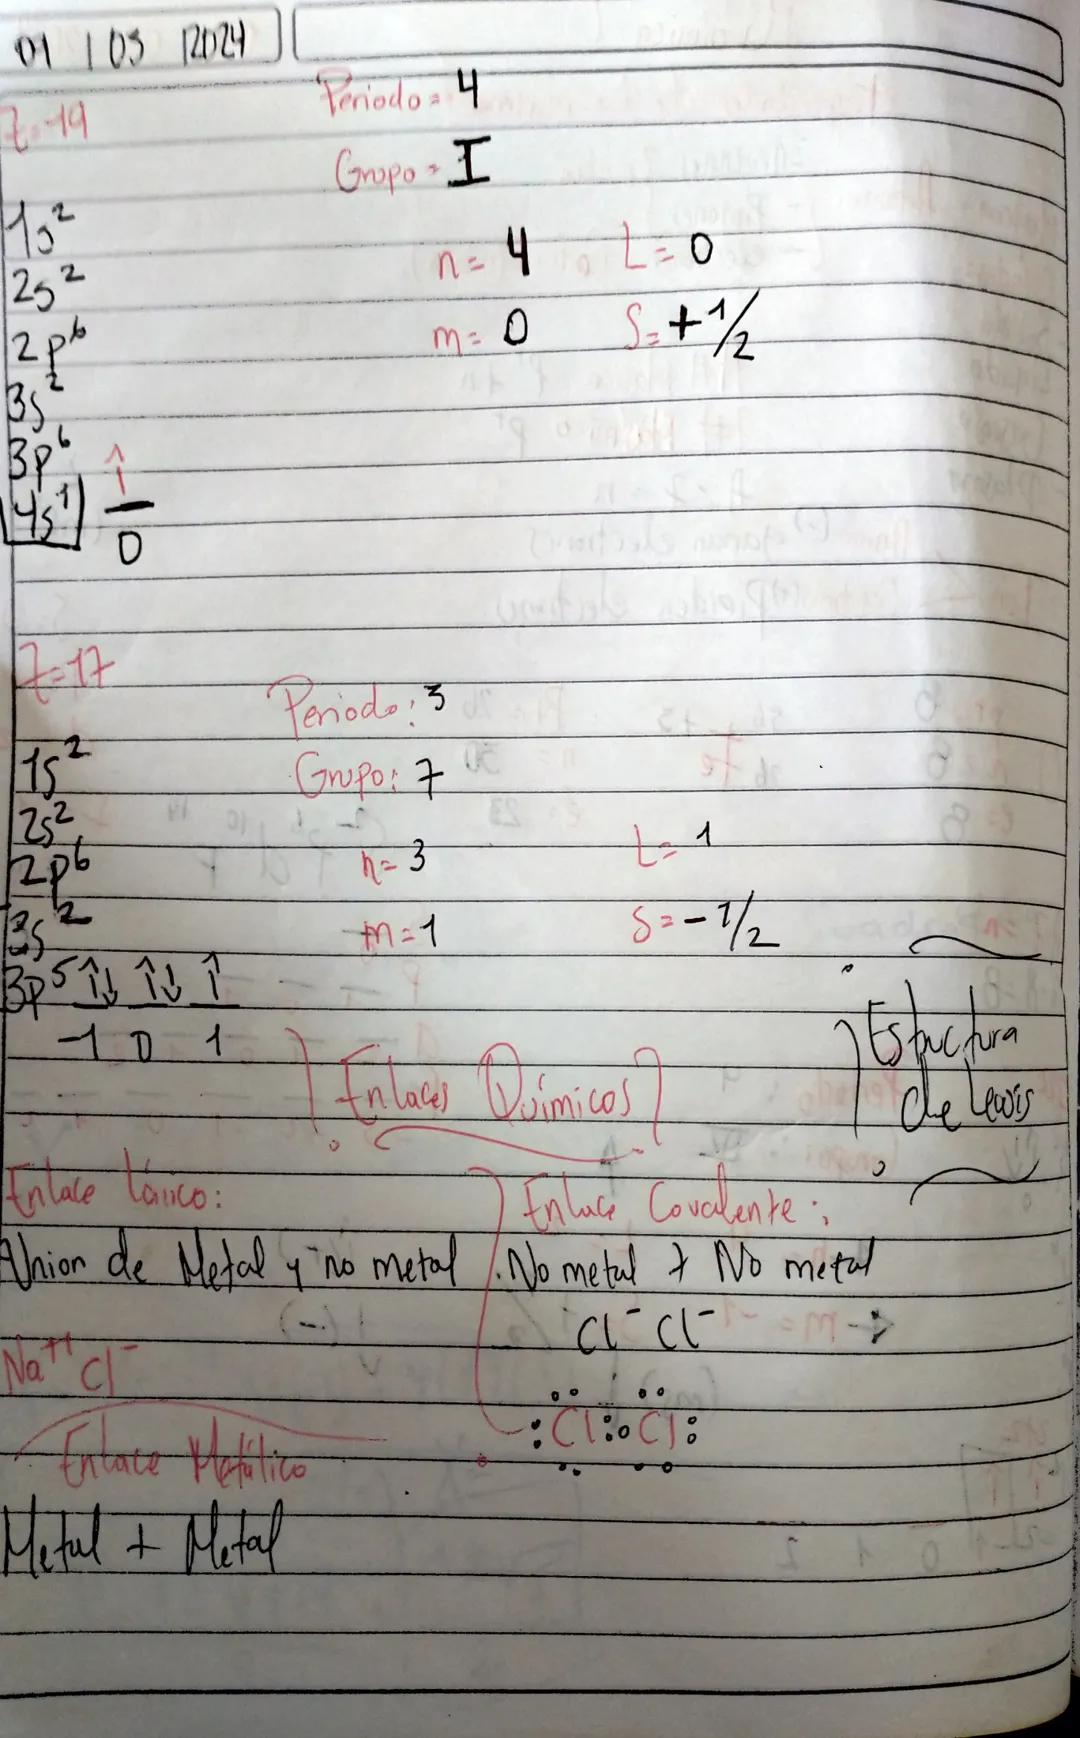 01 | 03 | 2024
Z=19
Periodo = 4
Grupo = I
1s²
2s²
2p⁶
3s²
3p⁶
4s¹ ↑
0
n= 4 L= 0
m= 0 S= +1/2
Z=17
Periodo: 3
Grupo: 7
1s²
2s²
2p⁶
3s²
3p⁵ ↑↓ ↑↓ ↑
-1 0 1
n= 3 L= 1
m= 1 S= -1/2
¡Enlaces Químicos!
¡Estructura
de Lewis
Enlace Iónico:
Union de Metal y no metal
Na⁺¹ Cl⁻
Enlace Metálico
Metal + Metal
Enlace Covalente:
No metal + No metal
Cl⁻ Cl⁻
:Cl:Cl: